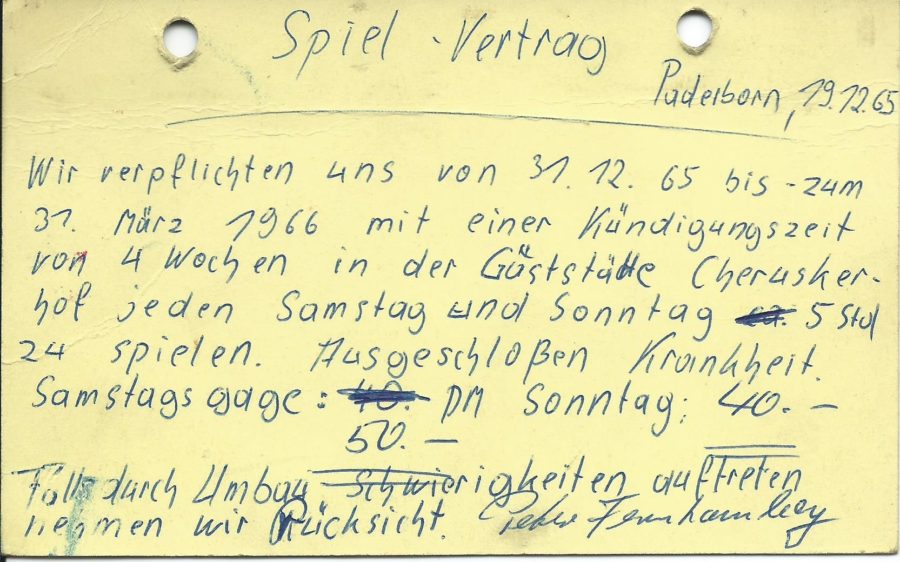 Spiel-Vertrag
Paderborn, 19.12.65
Wir verpflichten uns von 31.12.65 bis-zum
31. März 1966 mit einer Kündigungszeit
von 4 Wochen in der Gäststätte Cherusker-
hof jeden Samstag und Sonntag ca. 5 Std
zu spielen. Ausgeschloßen Krankheit.
Samstagsgage: 40.- DM Sonntag: 40.-
50.-
Falls durch Umbau Schwierigkeiten auftreten
nehmen wir Rücksicht.